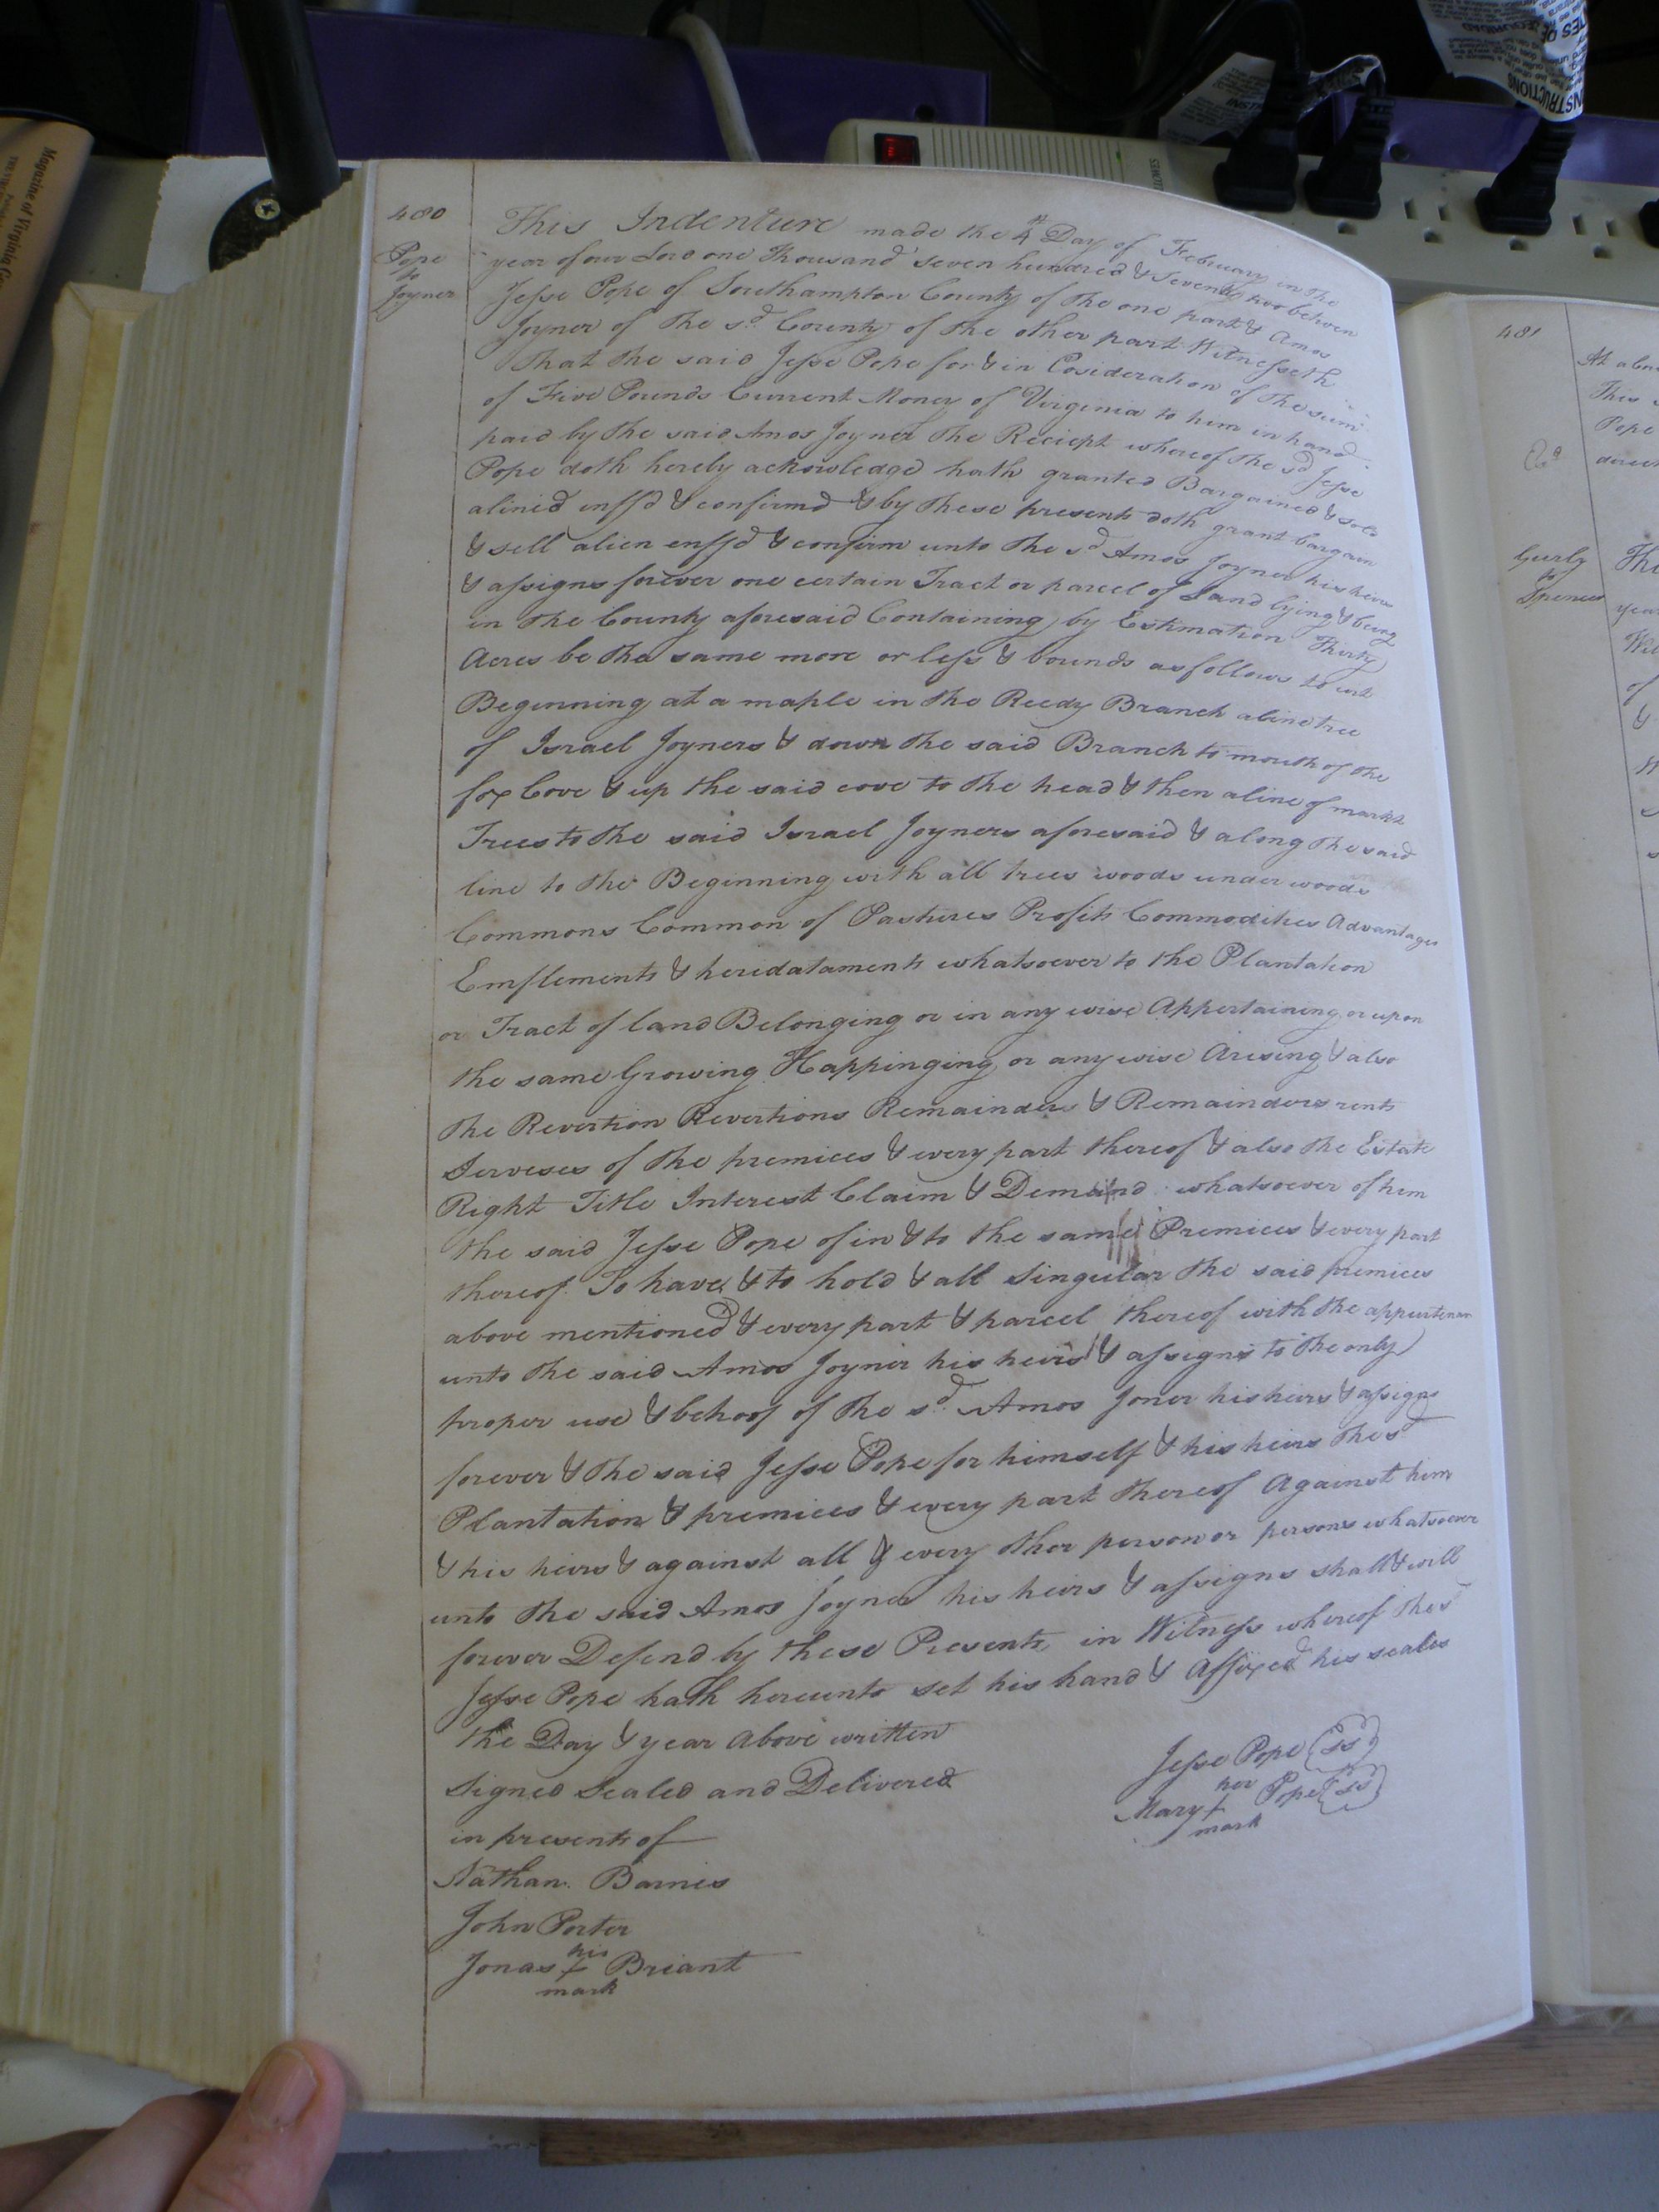 Magazine of Virginia
INSTRUCTIONS
480
Pope
to
Joyner
This Indenture made the 4th Day of February in the
year of our Lord one Thousand seven hundred & Seventy two between
Jesse Pope of Southampton County of the one part & Amos
Joyner of the sd. County of the other part Witnesseth
that the said Jesse Pope for & in Cosideration of the sum
of Five Pounds Current Money of Virginia to him in hand
paid by the said Amos Joyner the Reciept whereof the sd Jesse
Pope doth hereby acknowledge hath granted Bargained & sold
alined enffd & confirmd & by these presents doth grant bargain
& sell alien enffd & confirm unto the sd Amos Joyner his heirs
& assigns forever one certain Tract or parcel of Land lying & being
in the County aforesaid Containing by Estimation Thirty
Acres be the same more or less & bounds as follows to wit
Beginning at a maple in the Reedy Branch a line tree
of Israel Joyners & down the said Branch to mouth of the
fox Cove & up the said cove to the head & then a line of markt
Trees to the said Israel Joyners aforesaid & along the said
line to the Beginning with all trees woods under woods
Commons Common of Pastures Profits Commodities Advantages
Emplements & heridataments whatsoever to the Plantation
or Tract of land Belonging or in any wise Appertaining or upon
the same Growing Happinging or any wise Arising & also
the Revertion Revertions Remainder & Remainders rents
Serveses of the premices & every part thereof & also the Estate
Right Title Interest Claim & Demand whatsoever of him
the said Jesse Pope of in & to the same Premices & every part
thereof. To have & to hold & all Singular the said premices
above mentioned & every part & parcel thereof with the appurtenan
unto the said Amos Joyner his heirs & assigns to the only
proper use & behoof of the sd. Amos Joner his heirs & assigns
forever & the said Jesse Pope for himself & his heirs the sd
Plantation & premices & every part thereof Against him
& his heirs & against all & every other person or persons whatsoever
unto the said Amos Joyner his heirs & assigns shall & will
forever Defend by these Presents in Witness whereof the sd
Jesse Pope hath hereunto set his hand & Affixed his seales
the Day & year Above written
Signed Sealed and Delivered
in presents of
Jesse Pope (ss)
her
Mary + Pope (ss)
mark
Nathan. Barnes
John Porter
his
Jonas + Briant
mark
481
This
Pope
Gurly
to